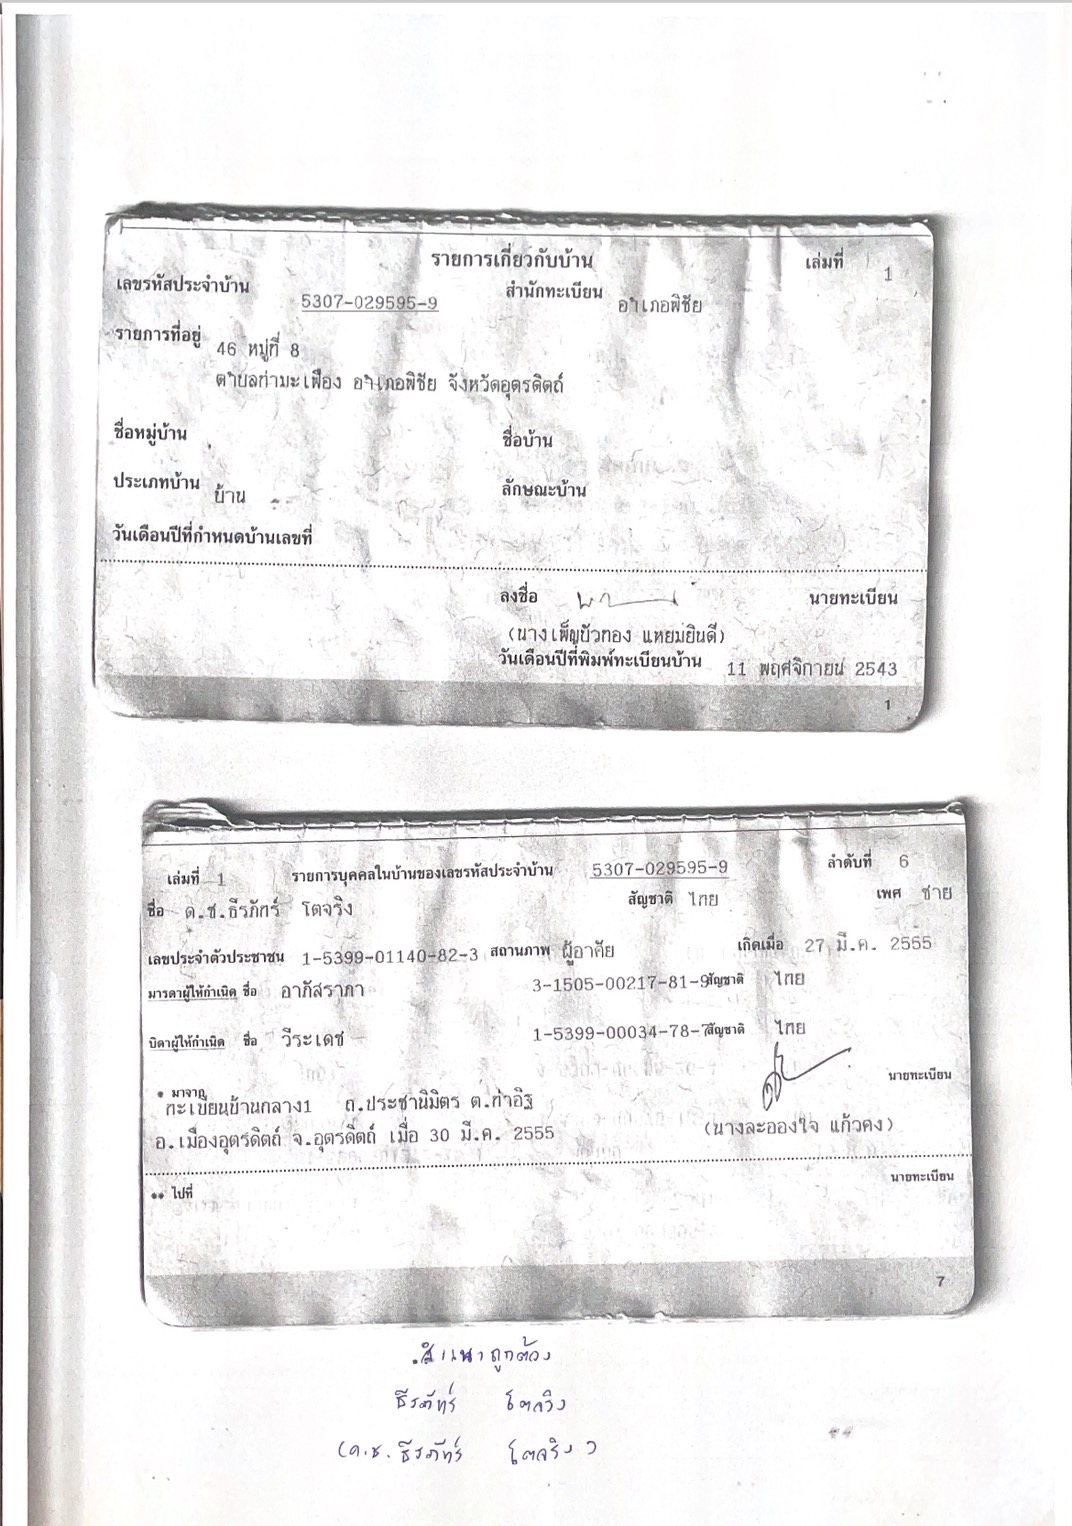 รายการเกี่ยวกับบ้าน เล่มที่ 1
เลขรหัสประจำบ้าน 5307-029595-9 สำนักทะเบียน อำเภอพิชัย
รายการที่อยู่ 46 หมู่ที่ 8
ตำบลท่ามะเฟือง อำเภอพิชัย จังหวัดอุตรดิตถ์
ชื่อหมู่บ้าน ชื่อบ้าน
ประเภทบ้าน บ้าน ลักษณะบ้าน
วันเดือนปีที่กำหนดบ้านเลขที่
ลงชื่อ นายทะเบียน
(นางเพ็ญบัวทอง แหยมยินดี)
วันเดือนปีที่พิมพ์ทะเบียนบ้าน 11 พฤศจิกายน 2543
1
เล่มที่ 1 รายการบุคคลในบ้านของเลขรหัสประจำบ้าน 5307-029595-9 ลำดับที่ 6
ชื่อ ด.ช.ธีรภัทร์ โตจริง สัญชาติ ไทย เพศ ชาย
เลขประจำตัวประชาชน 1-5399-01140-82-3 สถานภาพ ผู้อาศัย เกิดเมื่อ 27 มี.ค. 2555
มารดาผู้ให้กำเนิด ชื่อ อาภัสราภา 3-1505-00217-81-9 สัญชาติ ไทย
บิดาผู้ให้กำเนิด ชื่อ วีระเดช 1-5399-00034-78-7 สัญชาติ ไทย
* มาจาก นายทะเบียน
ทะเบียนบ้านกลาง1 ถ.ประชานิมิตร ต.ท่าอิฐ
อ.เมืองอุตรดิตถ์ จ.อุตรดิตถ์ เมื่อ 30 มี.ค. 2555 (นางละอองใจ แก้วคง)
** ไปที่ นายทะเบียน
7
สำเนาถูกต้อง
ธีรภัทร์ โตจริง
(ด.ช. ธีรภัทร์ โตจริง)